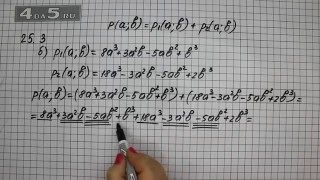 4.0A5.RU
p(a;b) = p₁(a;b) + p₂(a;b)
25.3
б) p₁(a;b) = 8a³+3a²b-5ab²+b³
p₂(a;b) = 18a³-3a²b-5ab²+2b³
p(a;b) = (8a³+3a²b-5ab²+b³)+(18a³-3a²b-5ab²+2b³)=
= 8a³+3a²b-5ab²+b³+18a³-3a²b-5ab²+2b³=